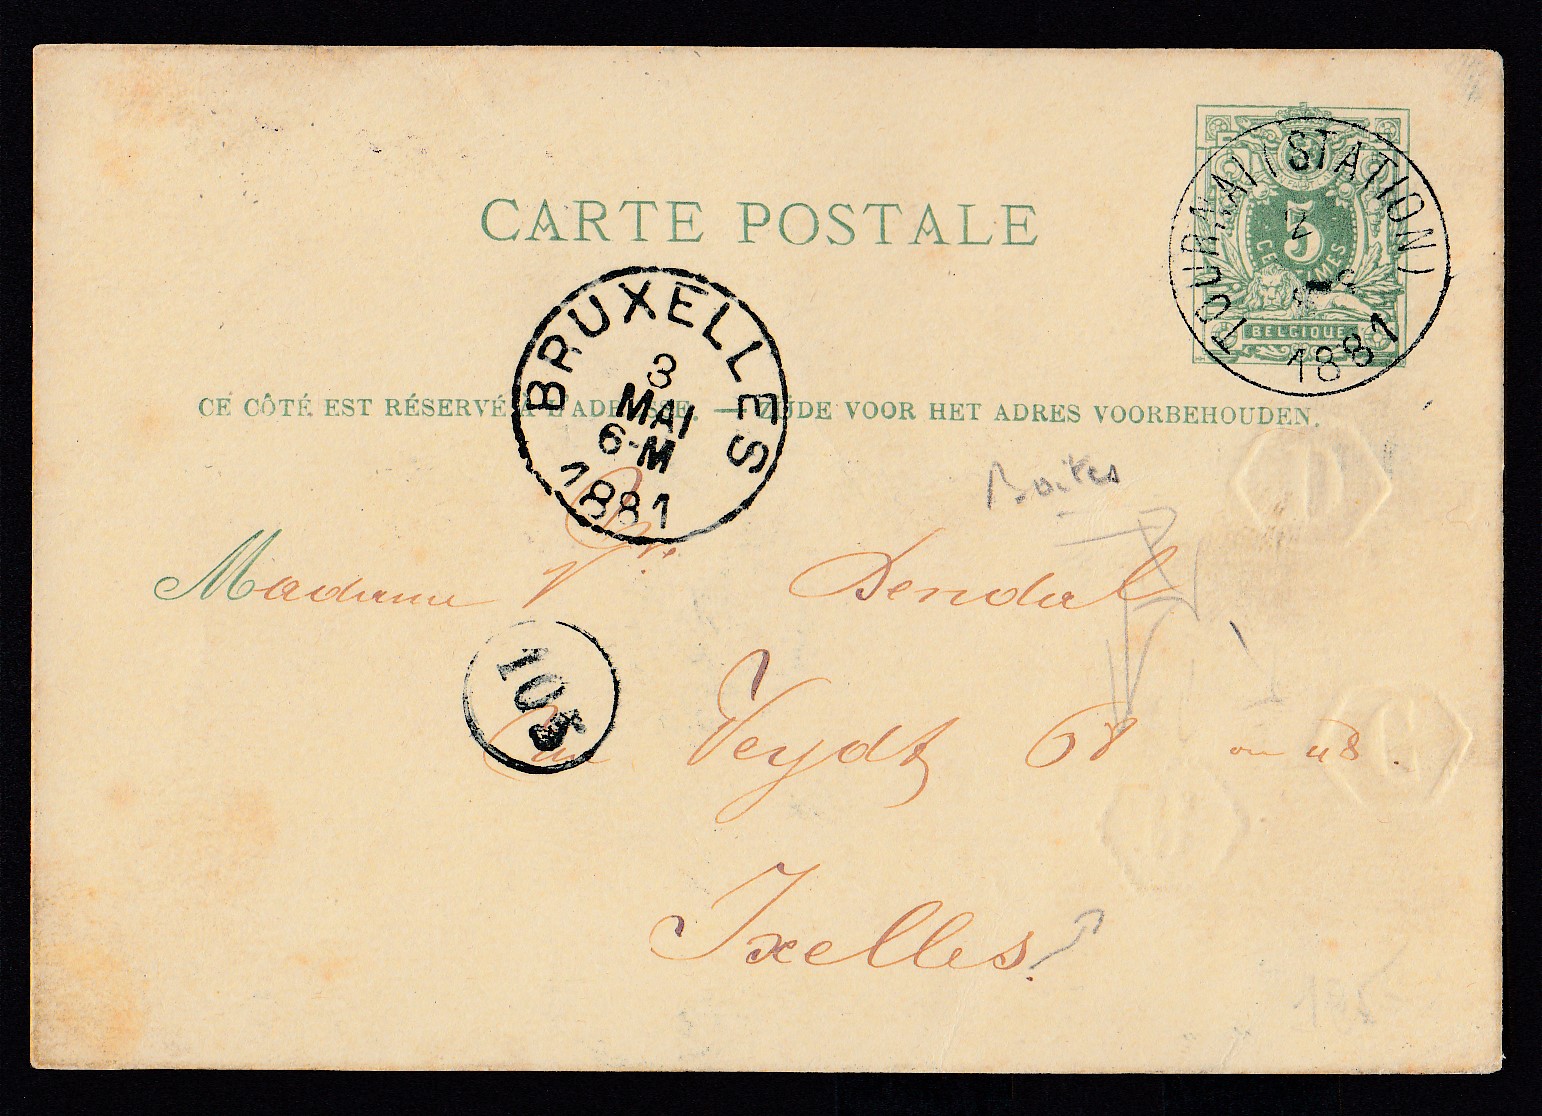 CARTE POSTALE
TOURNAI (STATION)
2
1881
5
CENTIMES
BELGIQUE
BRUXELLES
3
MAI
6-M
1881
CE CÔTÉ EST RÉSERVÉ À L'ADRESSE. — ZIJDE VOOR HET ADRES VOORBEHOUDEN.
Boites
Madame Vve Dendal
103
Rue Veydt 68 ou 48.
Ixelles.